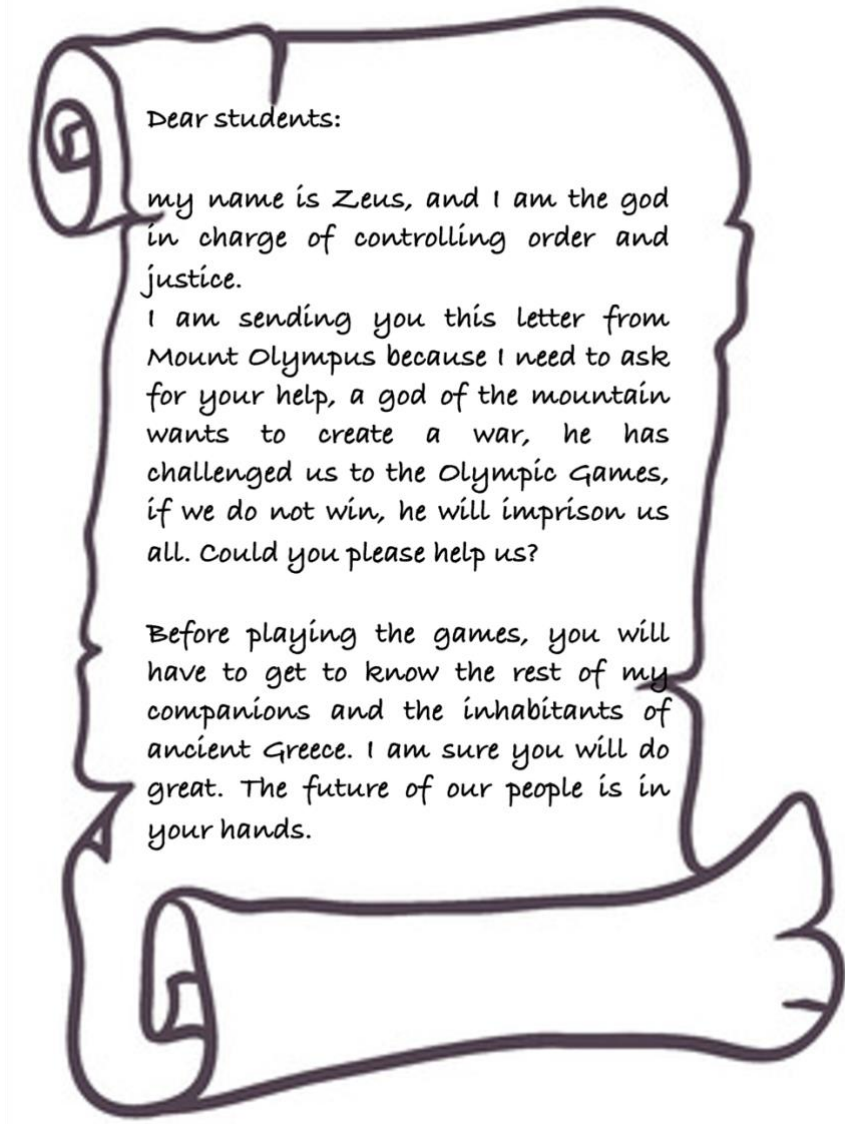 Dear students:
my name is Zeus, and I am the god
in charge of controlling order and
justice.
I am sending you this letter from
Mount Olympus because I need to ask
for your help, a god of the mountain
wants to create a war, he has
challenged us to the Olympic Games,
if we do not win, he will imprison us
all. Could you please help us?
Before playing the games, you will
have to get to know the rest of my
companions and the inhabitants of
ancient Greece. I am sure you will do
great. The future of our people is in
your hands.